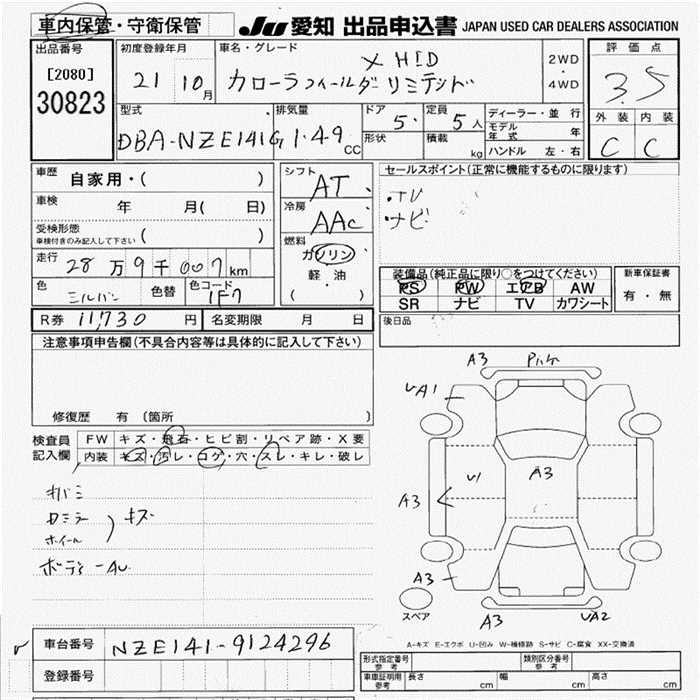 車内保管・守衛保管
JU 愛知 出品申込書 JAPAN USED CAR DEALERS ASSOCIATION
出品番号
[2080]
30823
初度登録年月
21 10月
車名・グレード
X HID
カローラフィールダーリミテッド
2WD
・
4WD
評価点
3.5
外装 内装
C C
型式
DBA-NZE141G
排気量
1.49 CC
ドア 5
形状
定員 5人
積載 kg
ディーラー・並行
モデル年式 年
ハンドル 左・右
車歴 自家用・( )
車検 年 月( 日)
受検形態
車検付きのみ記入して下さい ( )
走行 28万9千007km
色 シルバー 色替 色コード 1F7
シフト AT
冷房 AAC
燃料
ガソリン
軽油
( )
セールスポイント(正常に機能するものに限ります)
・TV
・ナビ
装備品(純正品に限り○をつけてください)
PS PW エアB AW
SR ナビ TV カワシート
新車保証書
有・無
R券 11,730 円 名変期限 月 日
後日品
注意事項申告欄(不具合内容等は具体的に記入して下さい)
修復歴 有 (箇所 )
検査員記入欄
FW キズ・飛石・ヒビ割・リペア跡・X要
内装 キズ・汚レ・コゲ・穴・スレ・キレ・破レ
キズ
ホイール
ボディーAU
A3
UA1
U1
A3
A3
A3
A3
UA2
スペア
A-キズ E-エクボ U-凹み W-補修跡 S-サビ C-腐食 XX-交換済
車台番号 NZE141-9124296
登録番号
形式指定番号
参考
類別区分番号
参考
車庫証明用
参考
長さ cm 幅 cm 高さ cm